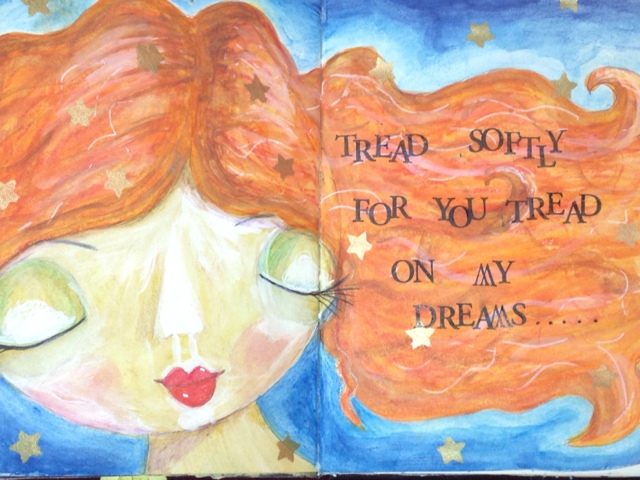 TREAD SOFTLY
FOR YOU TREAD
ON MY
DREAMS.....